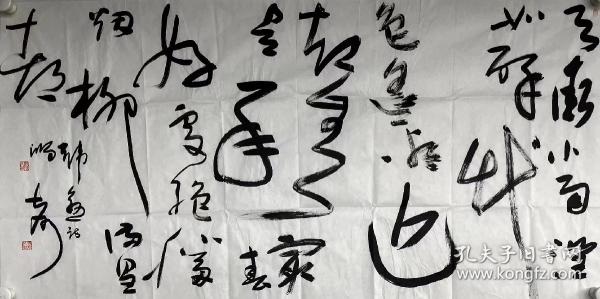 天街小雨润
如酥草
色遥看近
却无最
是一年春
好处绝胜
烟柳满皇
都
韩愈诗
孔夫子旧书网
www.kongfz.com